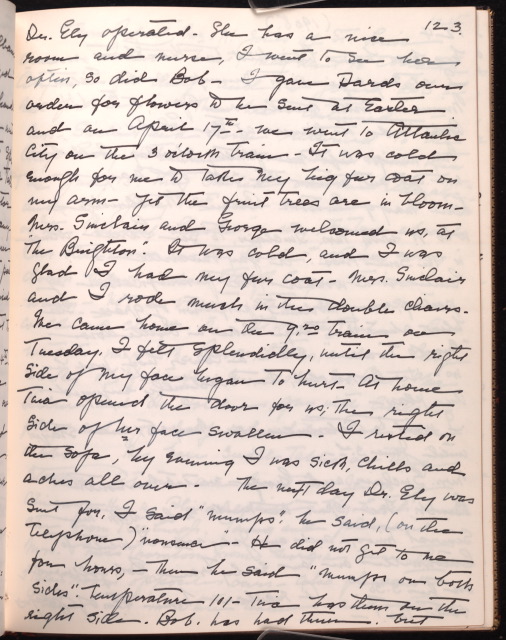 123.
Dr. Ely operated. She has a nice
room and nurse, I went to see her
often, so did Bob - I gave Dards our
order for flowers to be sent at Easter
and on April 17th - we went to Atlantic
City on the 3 o'clock train - It was cold
enough for me to take my big fur coat on
my arm - yet the fruit trees are in bloom -
Mrs. Sinclair and George welcomed us, at
"the Brighton". It was cold, and I was
glad I had my fur coat - Mrs. Sinclair
and I rode much in the double chairs.
We came home on the 9.20 train on
Tuesday. I felt splendidly, until the right
side of my face began to hurt - At home
Tina opened the door for us, the right
side of her face swollen - I rested on
the sofa, by evening I was sick, chills and
aches all over - The next day Dr. Ely was
sent for, I said "mumps". he said, (on the
telephone) "nonsense - He did not get to me
for hours, - then he said "mumps on both
sides". temperature 101 - Tina has them on the
right side. Bob. has had them. but